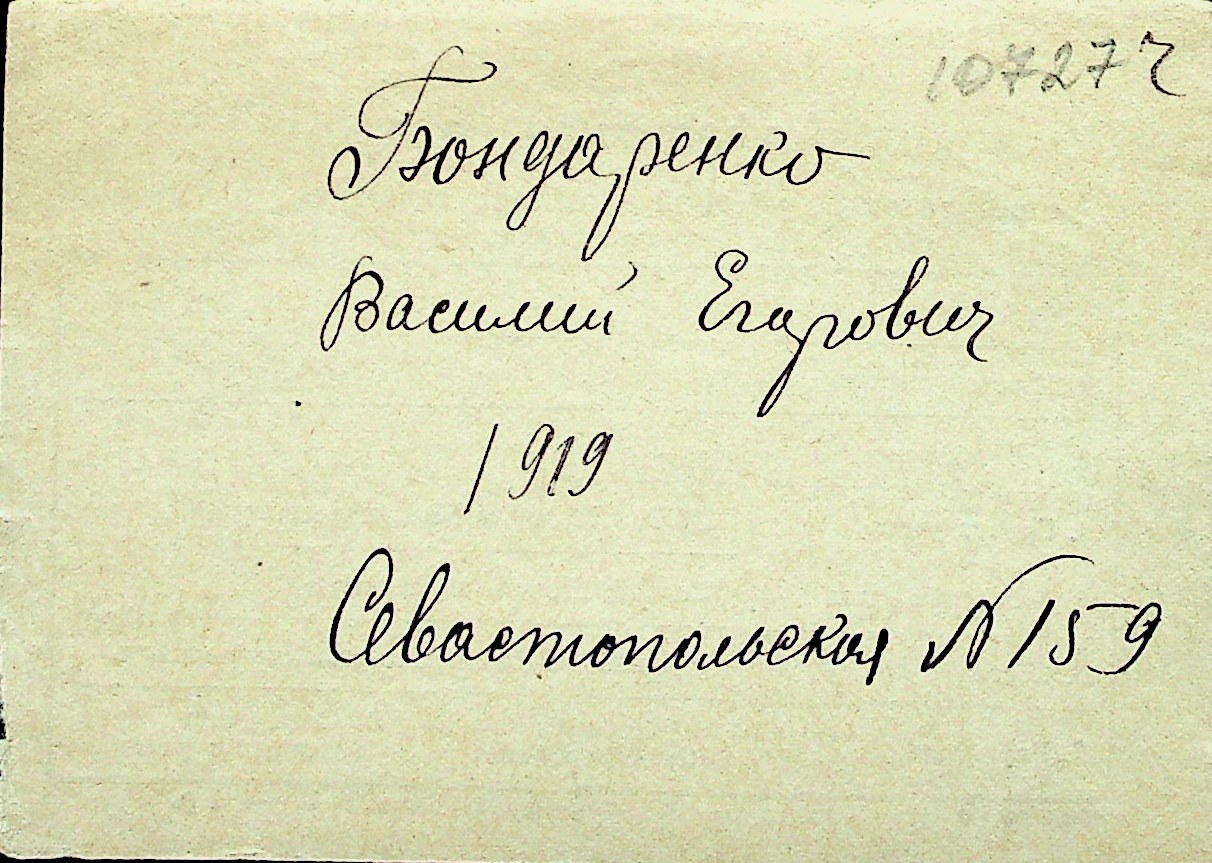 10727 ч
Бондаренко
Василий Егарович
1919
Севастопольская N 159